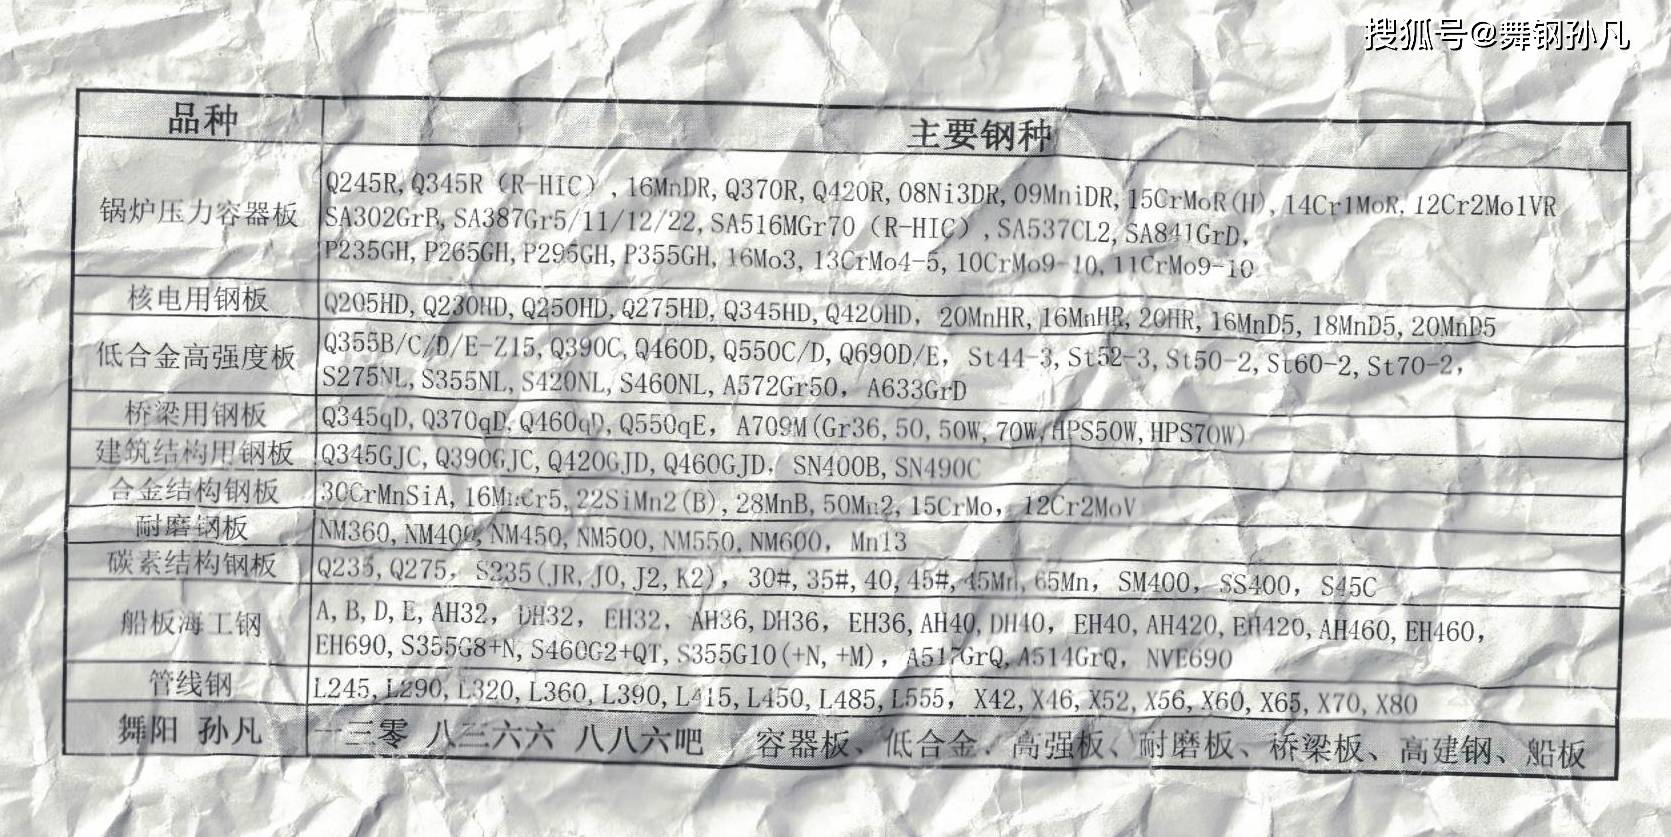 搜狐号@舞钢孙凡
品种 主要钢种
锅炉压力容器板 Q245R, Q345R（R-HIC）, 16MnDR, Q370R, Q420R, 08Ni3DR, 09MniDR, 15CrMoR(H), 14Cr1MoR, 12Cr2Mo1VR
SA302GrB, SA387Gr5/11/12/22, SA516MGr70（R-HIC）, SA537CL2, SA841GrD,
P235GH, P265GH, P295GH, P355GH, 16Mo3, 13CrMo4-5, 10CrMo9-10, 11CrMo9-10
核电用钢板 Q205HD, Q230HD, Q250HD, Q275HD, Q345HD, Q420HD, 20MnHR, 16MnHR, 20HR, 16MnD5, 18MnD5, 20MnD5
低合金高强度板 Q355B/C/D/E-Z15, Q390C, Q460D, Q550C/D, Q690D/E, St44-3, St52-3, St50-2, St60-2, St70-2,
S275NL, S355NL, S420NL, S460NL, A572Gr50, A633GrD
桥梁用钢板 Q345qD, Q370qD, Q460qD, Q550qE, A709M(Gr36, 50, 50W, 70W, HPS50W, HPS70W)
建筑结构用钢板 Q345GJC, Q390GJC, Q420GJD, Q460GJD, SN400B, SN490C
合金结构钢板 30CrMnSiA, 16MnCr5, 22SiMn2(B), 28MnB, 50Mn2, 15CrMo, 12Cr2MoV
耐磨钢板 NM360, NM400, NM450, NM500, NM550, NM600, Mn13
碳素结构钢板 Q235, Q275, S235(JR, J0, J2, K2), 30#, 35#, 40, 45#, 45Mn, 65Mn, SM400, SS400, S45C
船板海工钢 A, B, D, E, AH32, DH32, EH32, AH36, DH36, EH36, AH40, DH40, EH40, AH420, EH420, AH460, EH460,
EH690, S355G8+N, S460G2+QT, S355G10(+N, +M), A517GrQ, A514GrQ, NVE690
管线钢 L245, L290, L320, L360, L390, L415, L450, L485, L555, X42, X46, X52, X56, X60, X65, X70, X80
舞阳 孙凡 一三零 八三六六 八八六吧 容器板、低合金、高强板、耐磨板、桥梁板、高建钢、船板